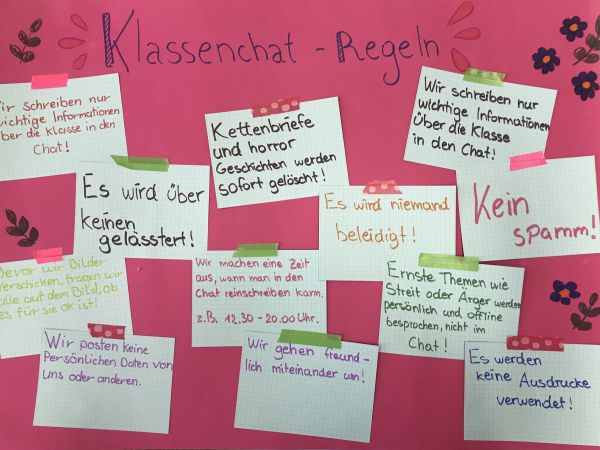 Klassenchat - Regeln
Wir schreiben nur
wichtige Informationen
über die Klasse in den
Chat!
Kettenbriefe
und horror
Geschichten werden
sofort gelöscht!
Wir schreiben nur
wichtige Informationen
Über die Klasse
in den Chat!
Es wird über
keinen
gelässtert!
Es wird niemand
beleidigt!
Kein
spamm!
Bevor wir Bilder
verschicken, fragen wir
alle auf dem Bild, ob
es für sie ok ist!
Wir machen eine Zeit
aus, wann man in den
Chat reinschreiben kann.
z.B. 12.30 - 20.00 Uhr.
Ernste Themen wie
Streit oder Ärger werden
persönlich und offline
besprochen, nicht im
Chat!
Wir posten keine
Persönlichen Daten von
uns oder anderen.
Wir gehen freund-
lich miteinander um!
Es werden
keine Ausdrücke
verwendet!